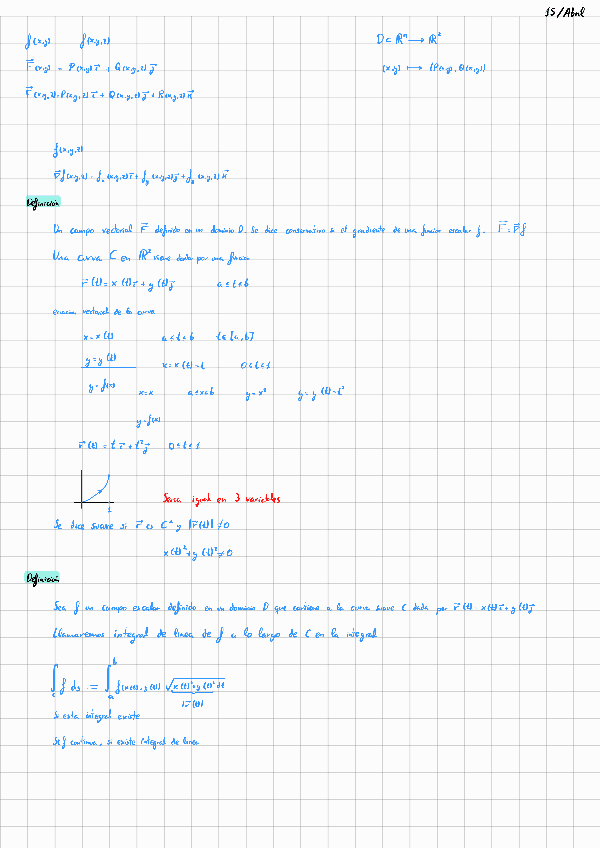 15/Abril
f(x,y) f(x,y,z) D⊂ℝⁿ⟶ℝ²
F⃗(x,y) = P(x,y)i⃗ + Q(x,y)j⃗ (x,y) ⟼ (P(x,y),Q(x,y))
F⃗(x,y,z)=P(x,y,z)i⃗ + Q(x,y,z)j⃗ + R(x,y,z)k⃗
f(x,y,z)
∇⃗f(x,y,z) = fₓ(x,y,z)i⃗ + f_y(x,y,z)j⃗ + f_z(x,y,z)k⃗
Definición
Un campo vectorial F⃗ definido en un dominio D. Se dice conservativo si el gradiente de una función escalar f. F⃗=∇⃗f
Una curva C en ℝ² viene dada por una función
r⃗(t)= x(t)i⃗ + y(t)j⃗ a≤t≤b
ecuación vectorial de la curva
x=x(t) a≤t≤b t∈[a,b]
y=y(t) x=x(t)=t 0≤t≤1
y=f(x) x=x a≤x≤b y=x² y=y(t)=t²
y=f(x)
r⃗(t) = t i⃗ + t² j⃗ 0≤t≤1
1
Sería igual en 3 variables
Se dice suave si r⃗ es C¹ y |r⃗(t)| ≠0
x(t)²+y(t)²≠0
Definición
Sea f un campo escalar definido en un dominio D que contiene a la curva suave C dada por r⃗(t)=x(t)i⃗+y(t)j⃗
Llamaremos integral de línea de f a lo largo de C en la integral
∫_c f ds = ∫_a^b f(x(t),y(t)) √x(t)²+y(t)² dt
|r⃗(t)|
Si esta integral existe
Si f continua, si existe integral de línea